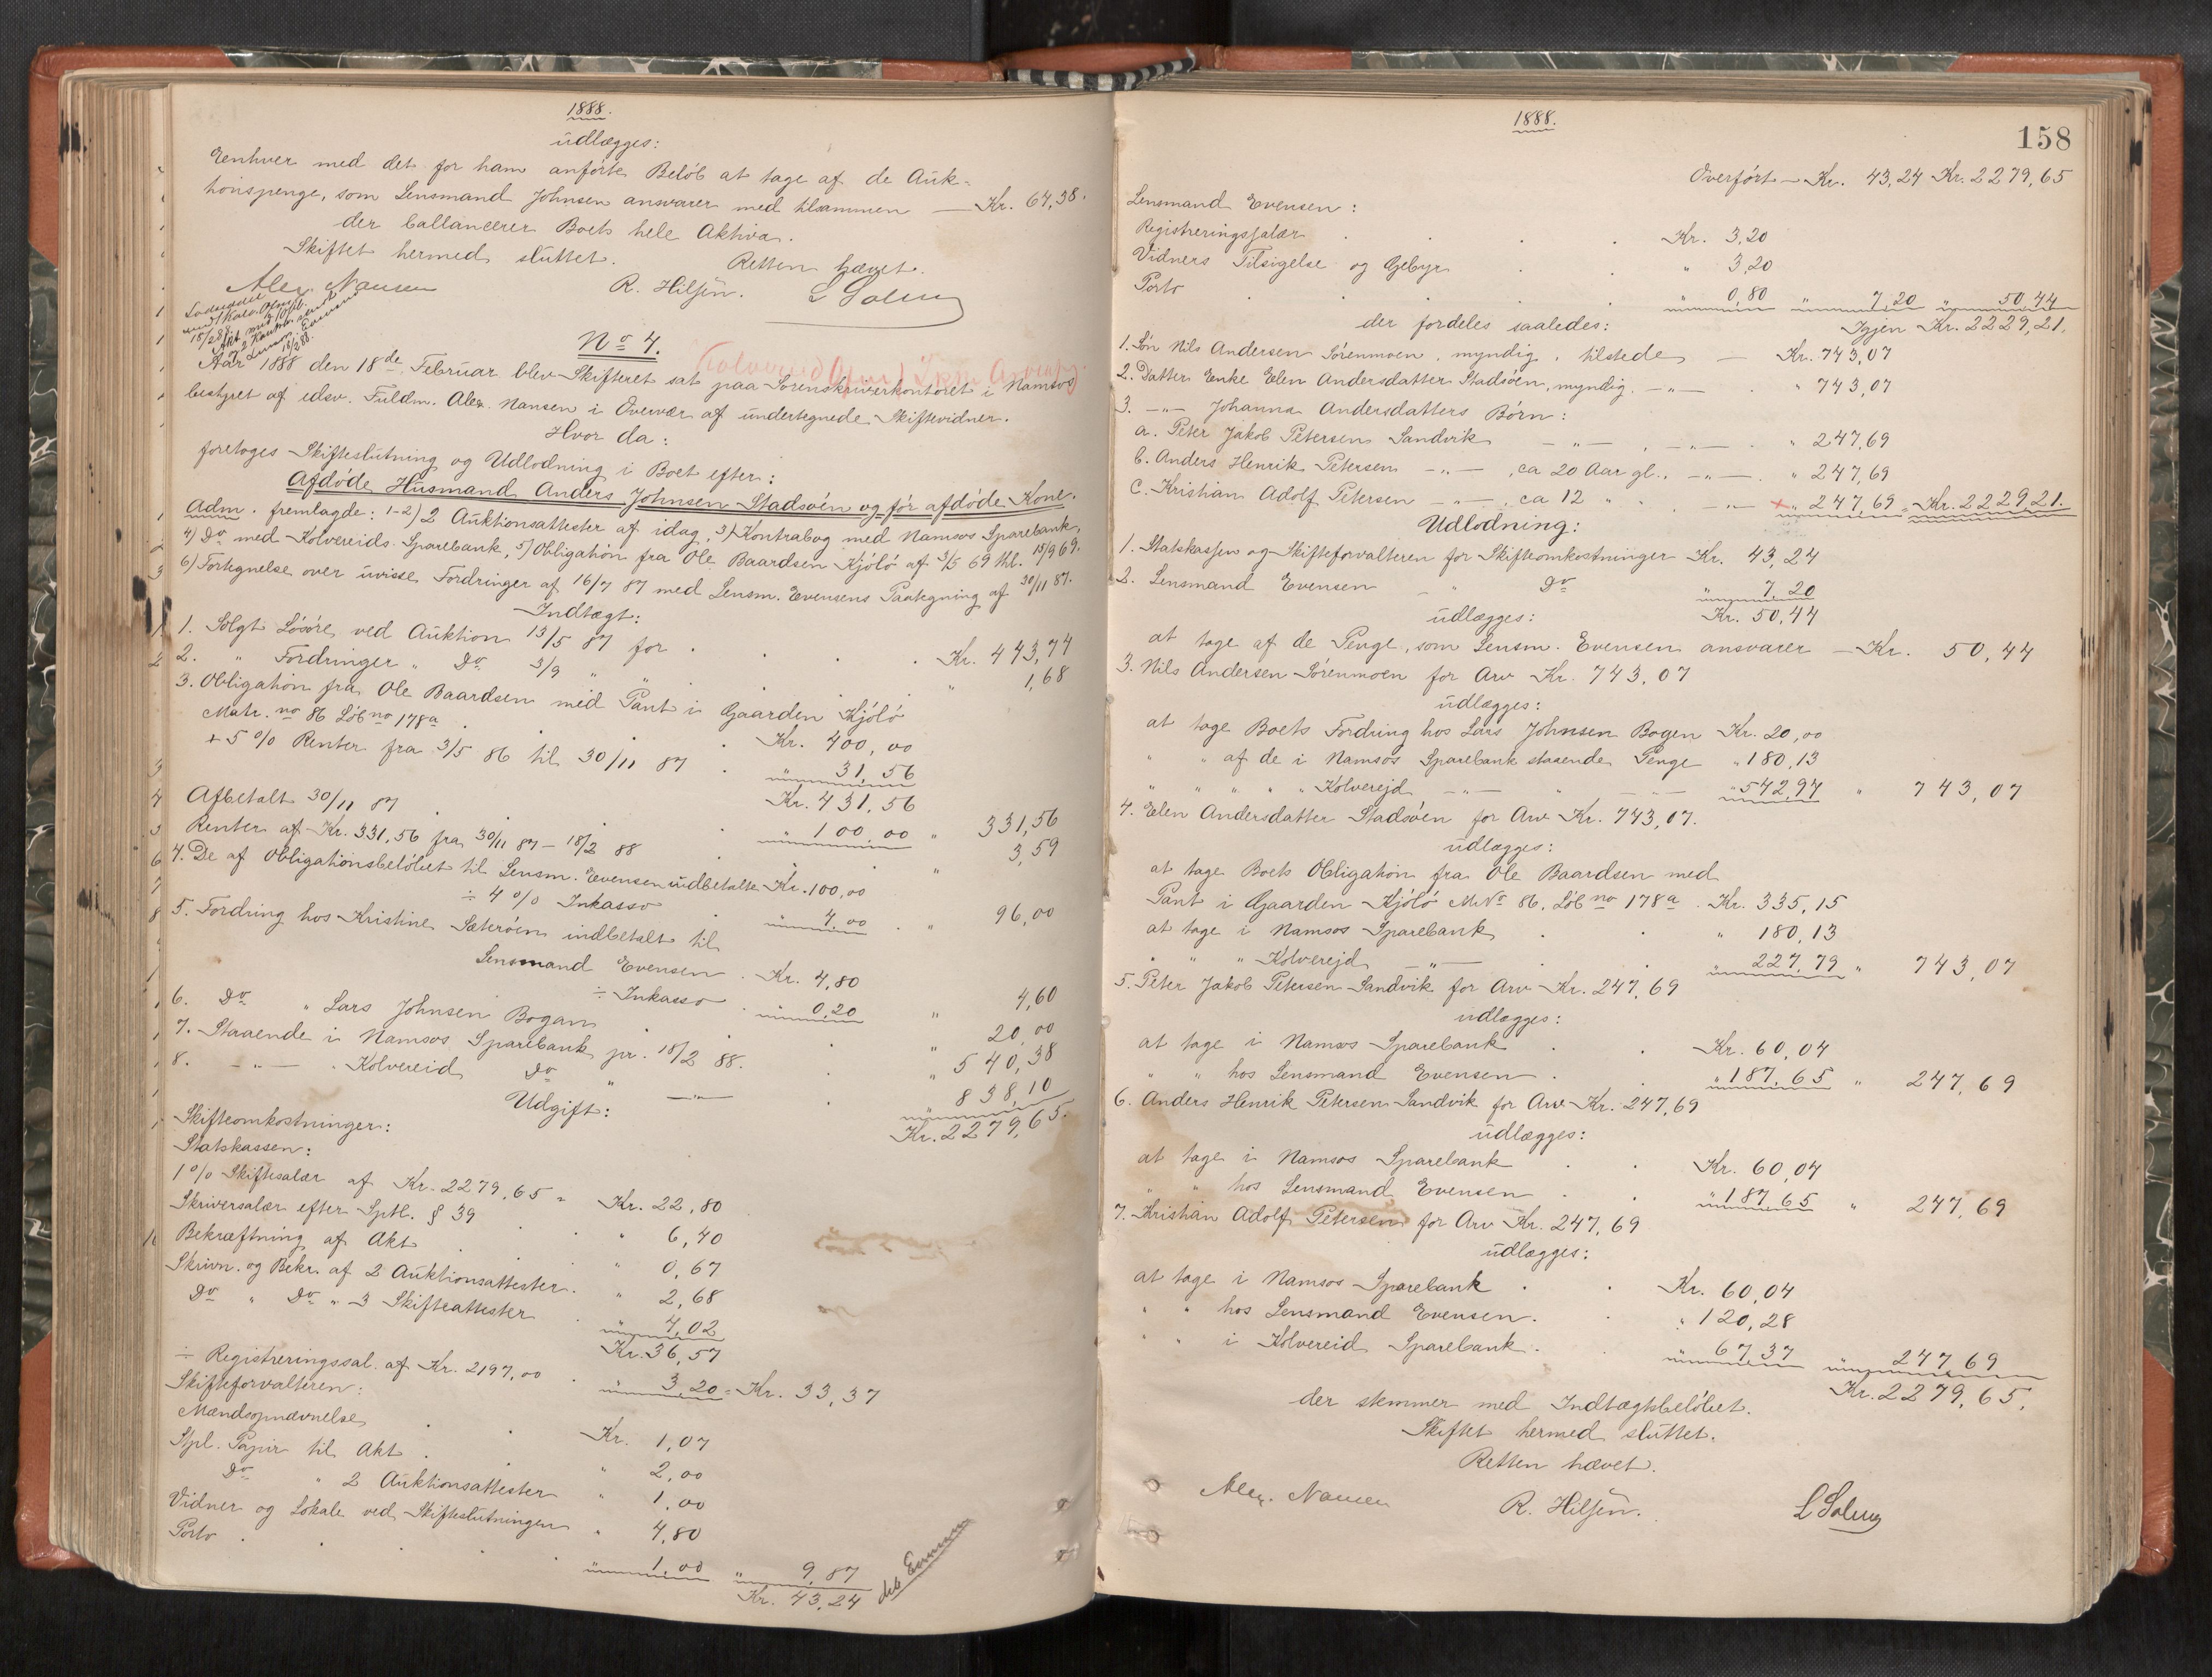 1888.
udlægges:
Enhver med det for ham anførte Beløb at tage af de Auk-
tionspenge, som Lensmand Johnsen ansvarer med tilsammen — Kr. 64,38.
der ballancerer Boets hele Aktiva.
Skiftet hermed sluttet. Retten hævet.
Alex. Nansen R. Hilsen. L Solem
No 4.
Aar 1888 den 18de Februar blev Skifteret sat paa Sorenskriverkontoret i Namsos
bestyret af edsv. Fuldm. Alex. Nansen i Overvær af undertegnede Skiftevidner.
Hvor da:
foretoges Skifteslutning og Udlodning i Boet efter:
Afdøde Husmand Anders Johnsen Stadsøen og før afdøde Kone.
Adm. fremlagde: 1-2) 2 Auktionsattester af idag, 3) Kontrabog med Namsos Sparebank,
4) Do med Kolvereids Sparebank, 5) Obligation fra Ole Baardsen Kjølø af 3/5 69 thl. 15/9 69.
6) Fortegnelse over uvisse Fordringer af 16/7 87 med Lensm. Evensens Paategning af 30/11 87.
Indtægt:
1. Solgt Løsøre ved Auktion 13/5 87 for . . . Kr. 443,74
2. " Fordringer " Do 3/9 " " . . . " 1,68
3. Obligation fra Ole Baardsen med Pant i Gaarden Kjølø
Matr. no 86 Løbno 178a . . Kr. 400,00
+ 5% Renter fra 3/5 86 til 30/11 87 . " 31,56
Kr. 431,56
Afbetalt 30/11 87 . . " 100,00 " 331,56
Renter af Kr. 331,56 fra 30/11 87 – 18/2 88 . " 3,59
4. De af Obligationsbeløbet til Lensm. Evensen udbetalte Kr. 100,00
÷ 4% Inkasso . " 4,00 . " 96,00
5. Fordring hos Kristine Sæterøen indbetalt til
Lensmand Evensen . Kr. 4,80
÷ Inkasso . " 0,20 " 4,60
6. Do " Lars Johnsen Bogan . . . " 20,00
7. Staaende i Namsos Sparebank pr. 18/2 88. . " 540,38
8. —"— . Kolvereid Do " —"— . " 838,10
Kr. 2279,65.
Udgift:
Skifteomkostninger:
Statskassen:
1% Skiftesalær af Kr. 2279,65 = Kr. 22,80
Skriversalær efter Sptl. § 39 . " 6,40
Bekræftning af Akt . . " 0,67
Skrivn. og Bekr. af 2 Auktionsattester . " 2,68
Do " Do " 3 Skifteattester . " 4,02
Kr. 36,57
÷ Registreringssal. af Kr. 2197,00 . " 3,20 = Kr. 33,37
Skifteforvalteren:
Mændsopnævnelse . . Kr. 1,07
Stpl. Papir til Akt . . " 2,00
Do " 2 Auktionsattester " 1,00
Vidner og Lokale ved Skifteslutningen " 4,80
Porto . . . . " 1,00 " 9,87
Kr. 43,24
1888.
158
Overført — Kr. 43,24 Kr. 2279,65
Lensmand Evensen:
Registreringssalær . . . . Kr. 3,20
Vidners Tilsigelse og Gebyr . . " 3,20
Porto . . . . . " 0,80 " 7,20 " 50,44
Igjen Kr. 2229,21.
der fordeles saaledes:
1. Søn Nils Andersen Sørenmoen, myndig, tilstede — Kr. 743,07
2. Datter Enke Elen Andersdatter Stadsøen, myndig. —"— . " 743,07
3. —"— Johanna Andersdatters Børn:
a. Peter Jakob Petersen Sandvik —"—, —"— . " 247,69
b. Anders Henrik Petersen —"—, ca 20 Aar gl., —"— . " 247,69
c. Kristian Adolf Petersen —"—, ca 12 " . —"— " 247,69 = Kr. 2229,21.
Udlodning:
1. Statskassen og Skifteforvalteren for Skifteomkostninger Kr. 43,24
2. Lensmand Evensen — " Do " 7,20
Kr. 50,44
udlægges:
at tage af de Penge, som Lensm. Evensen ansvarer — Kr. 50,44
3. Nils Andersen Sørenmoen for Arv Kr. 743,07
udlægges:
at tage Boets Fordring hos Lars Johnsen Bogen Kr. 20,00
" " af de i Namsos Sparebank staaende Penge " 180,13
" " " " " Kolverejd —"— " —"— " 542,94 " 743,07
4. Elen Andersdatter Stadsøen for Arv Kr. 743,07.
udlægges:
at tage Boets Obligation fra Ole Baardsen med
Pant i Gaarden Kjølø M.No 86, Løbno 178a . Kr. 335,15
at tage i Namsos Sparebank . . " 180,13
" " " Kolverejd —"— . . " 227,79 " 743,07
5. Peter Jakob Petersen Sandvik for Arv Kr. 247,69
udlægges:
at tage i Namsos Sparebank . . Kr. 60,04
" " hos Lensmand Evensen . . " 187,65 " 247,69
6. Anders Henrik Petersen Sandvik for Arv Kr. 247,69
udlægges:
at tage i Namsos Sparebank . . Kr. 60,04
" " hos Lensmand Evensen . . " 187,65 " 247,69
7. Kristian Adolf Petersen for Arv Kr. 247,69
udlægges:
at tage i Namsos Sparebank . . Kr. 60,04
" " hos Lensmand Evensen . . " 120,28
" " i Kolvereid Sparebank . . " 67,37 " 247,69
Kr. 2279,65.
der stemmer med Indtægtsbeløbet.
Skiftet hermed sluttet.
Retten hævet.
Alex. Nansen R. Hilsen. L Solem